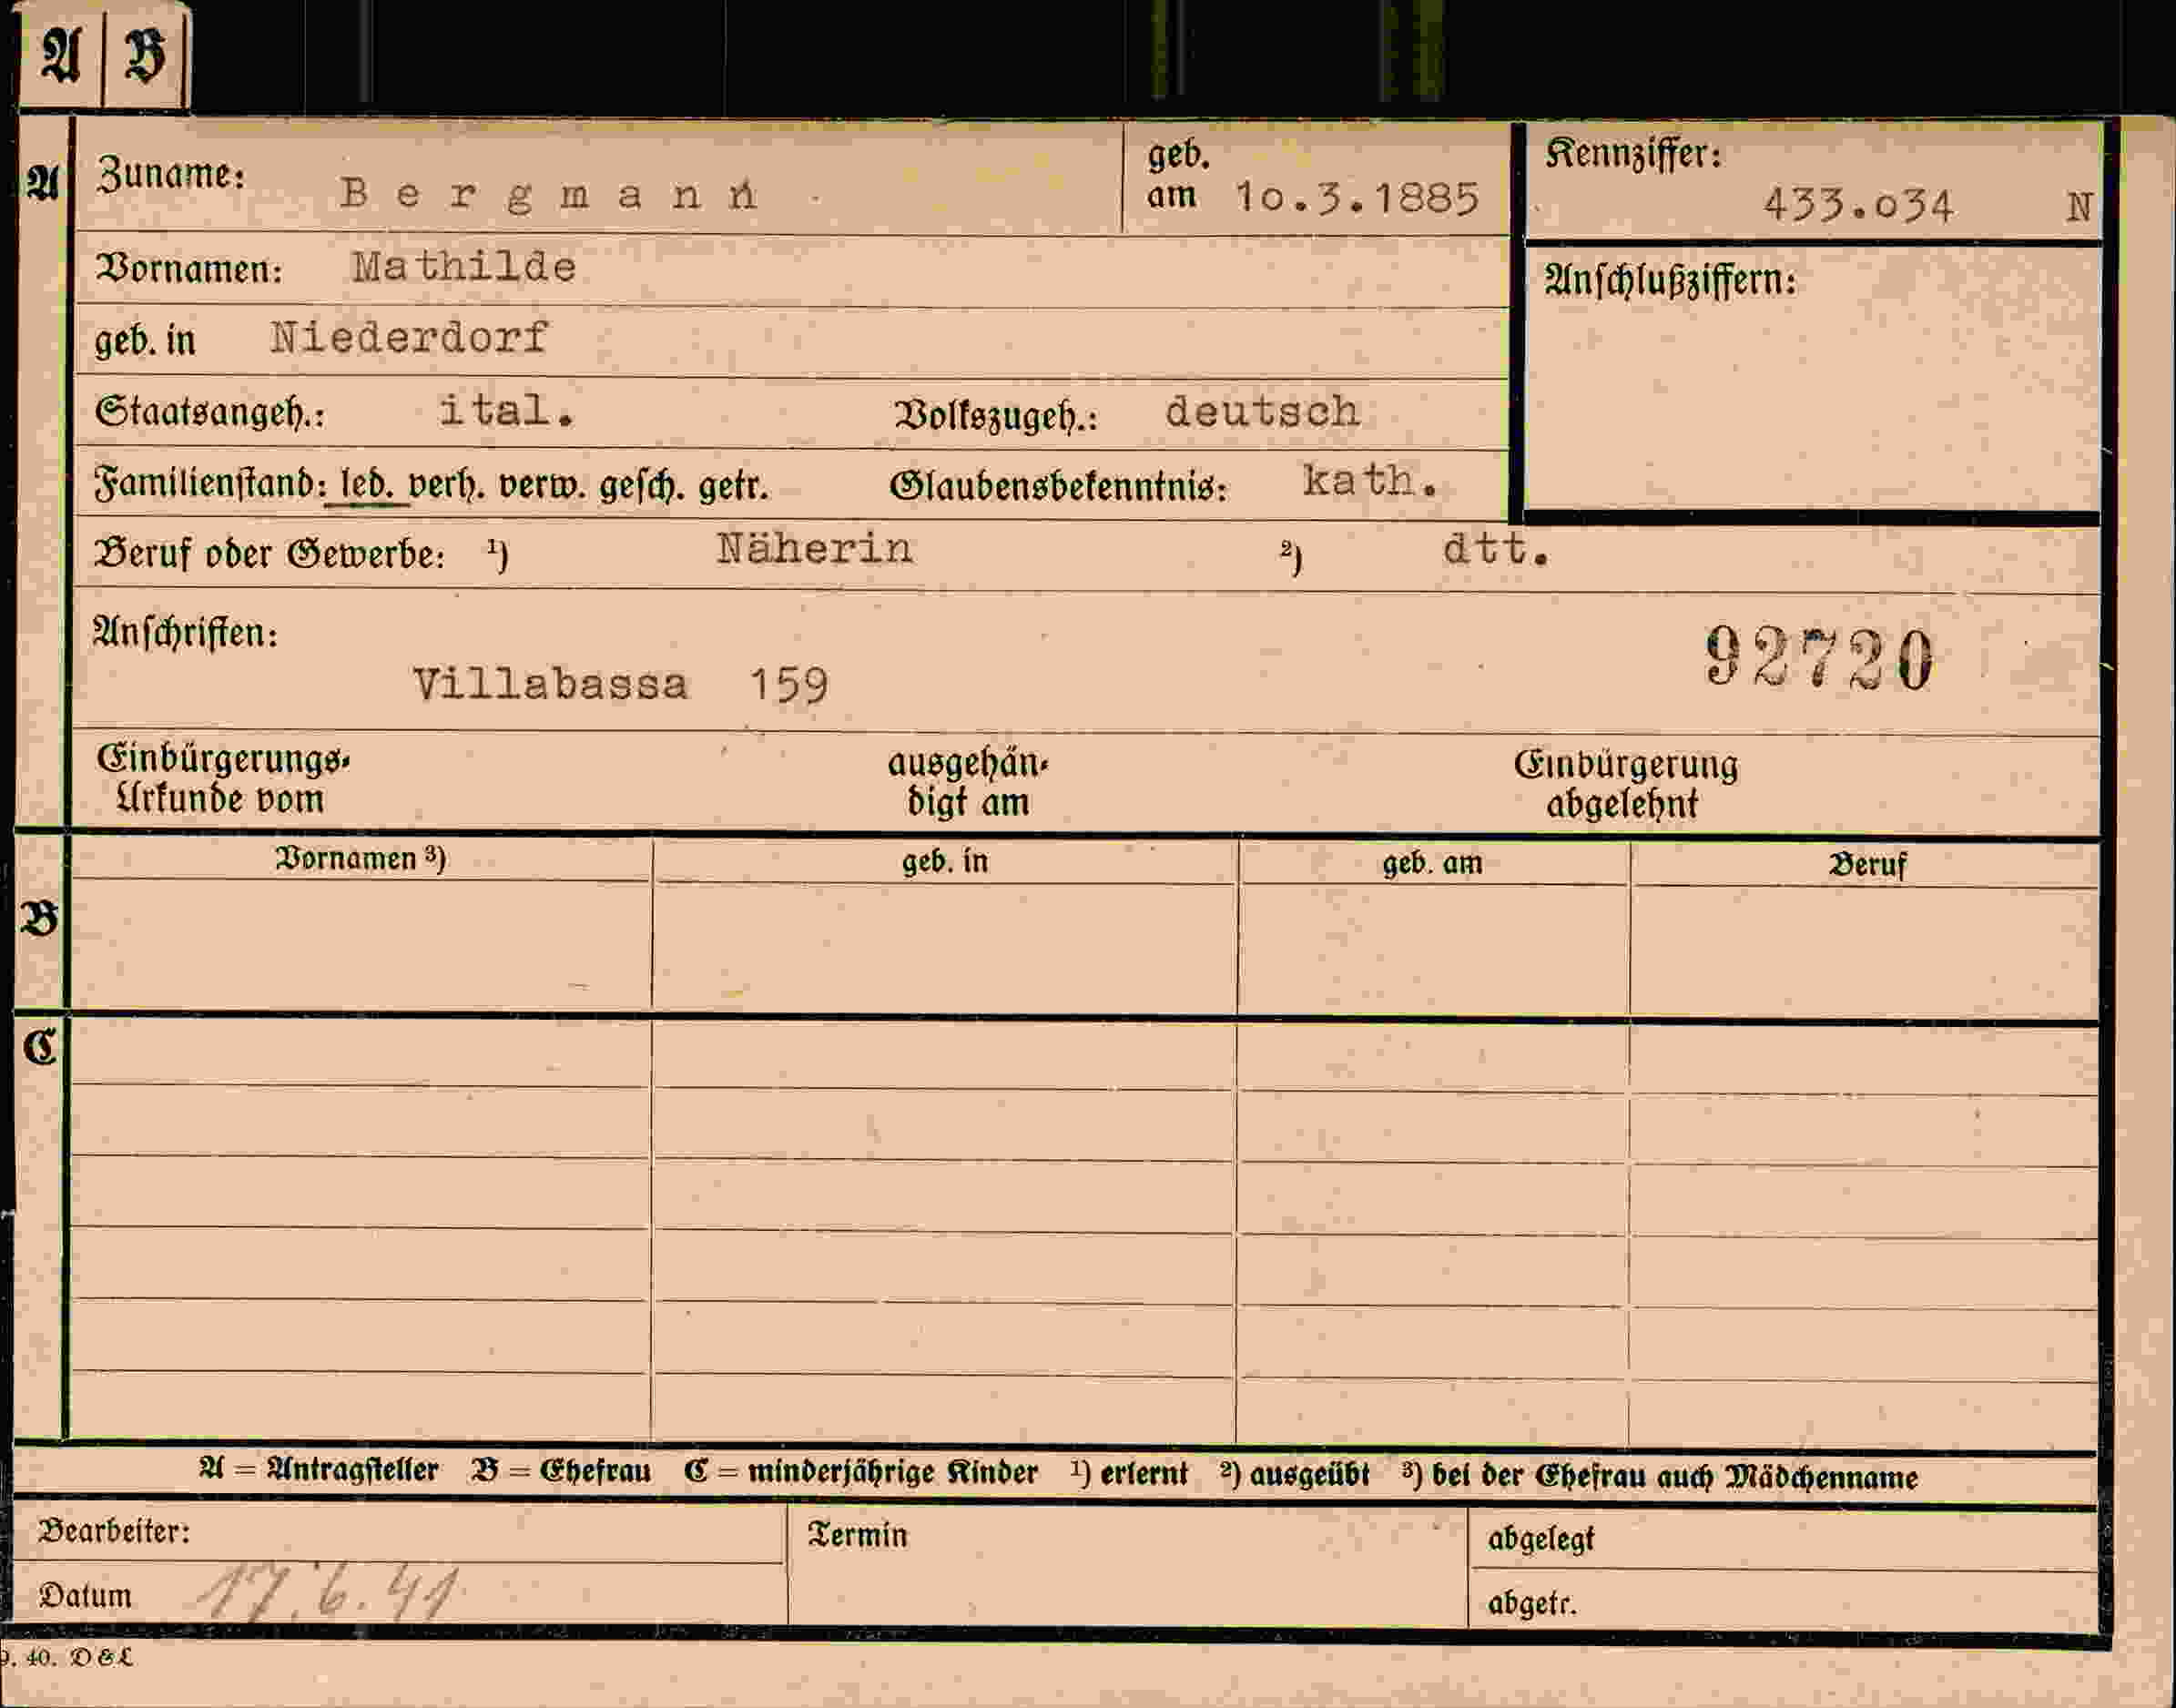 A B
A Zuname: Bergmann geb. am 10.3.1885 Kennziffer: 433.034 N
Vornamen: Mathilde Anschlußziffern:
geb. in Niederdorf
Staatsangeh.: ital. Volkszugeh.: deutsch
Familienstand: led. verh. verw. gesch. getr. Glaubensbekenntnis: kath.
Beruf oder Gewerbe: 1) Näherin 2) dtt.
Anschriften: 92720
Villabassa 159
Einbürgerungs- ausgehän- Einbürgerung
Urkunde vom digt am abgelehnt
Vornamen 3) geb. in geb. am Beruf
B
C
A = Antragsteller B = Ehefrau C = minderjährige Kinder 1) erlernt 2) ausgeübt 3) bei der Ehefrau auch Mädchenname
Bearbeiter: Termin abgelegt
Datum 17.6.41 abgetr.
9. 40. D & L